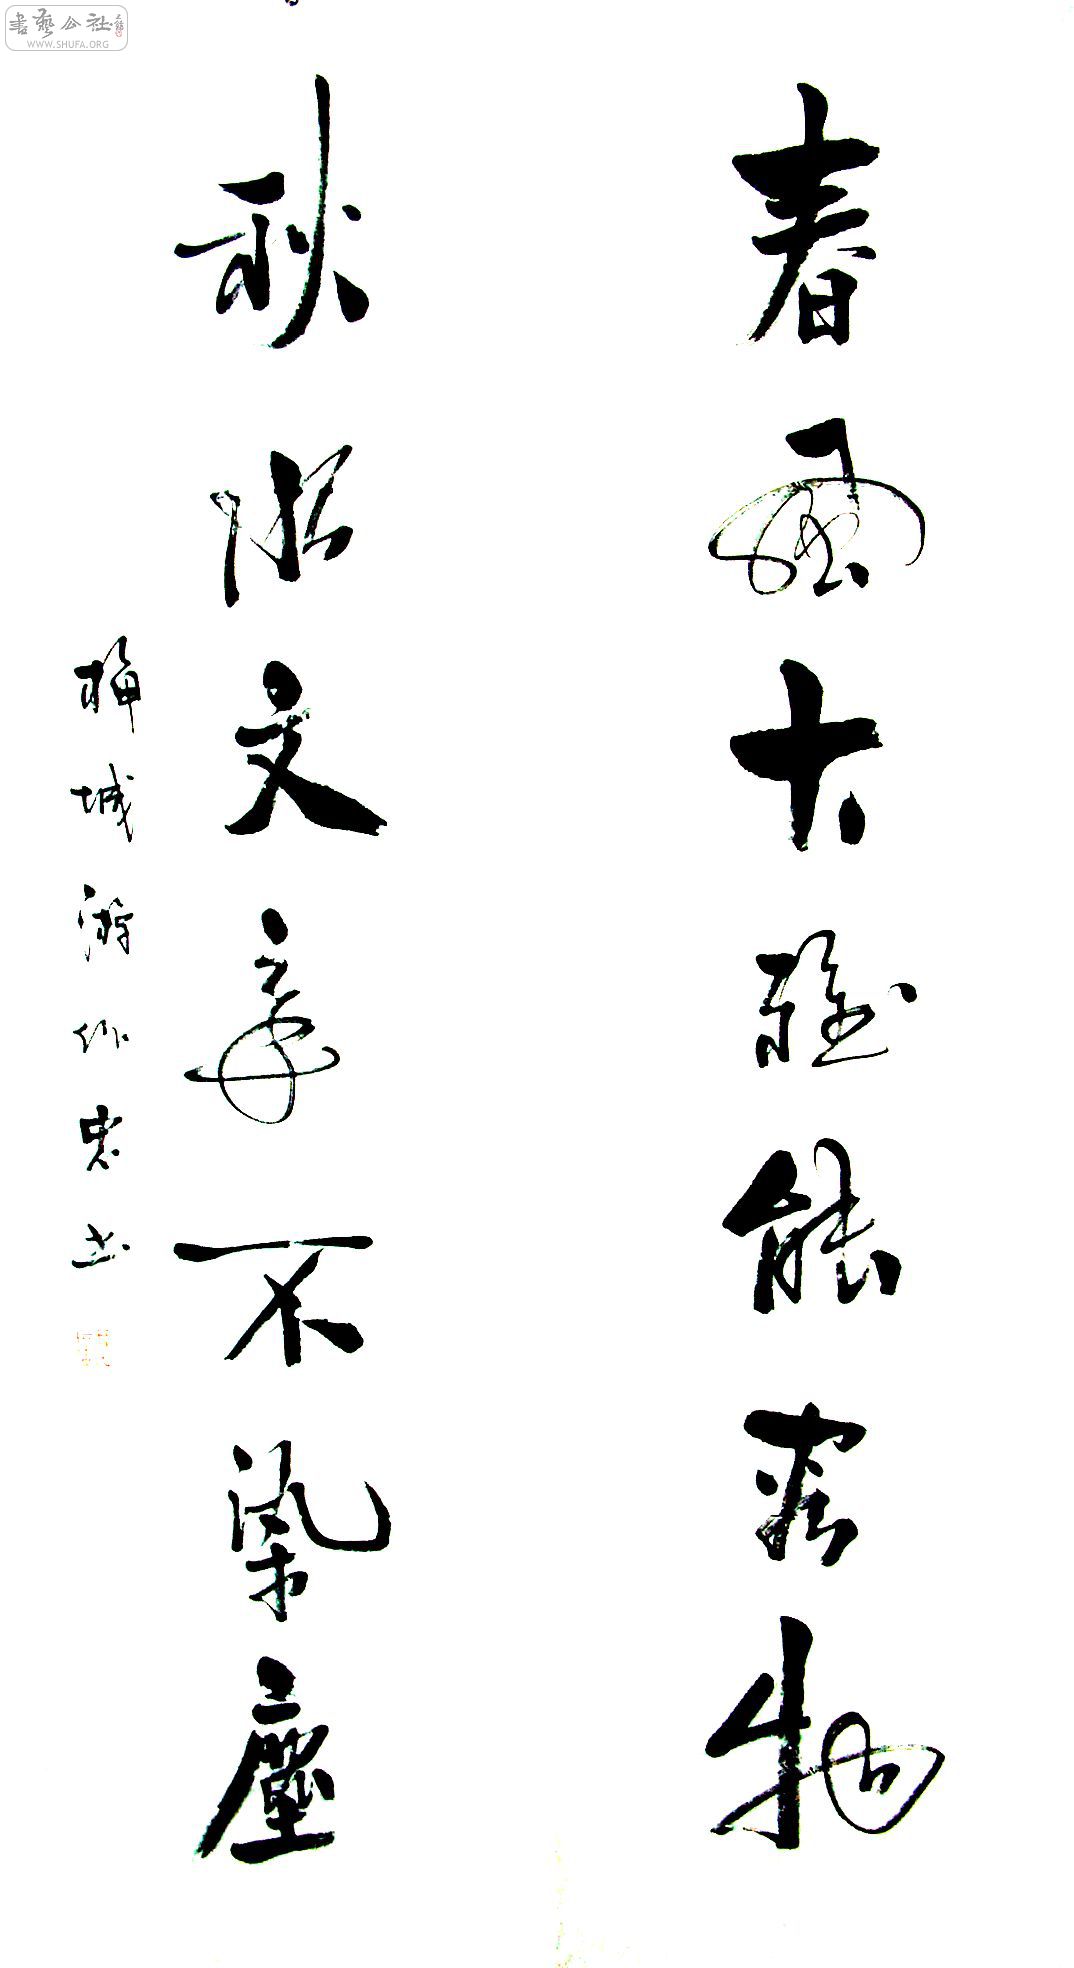 书艺公社
WWW.SHUFA.ORG
春风大雅能容物
秋水文章不染尘
城游作忠书